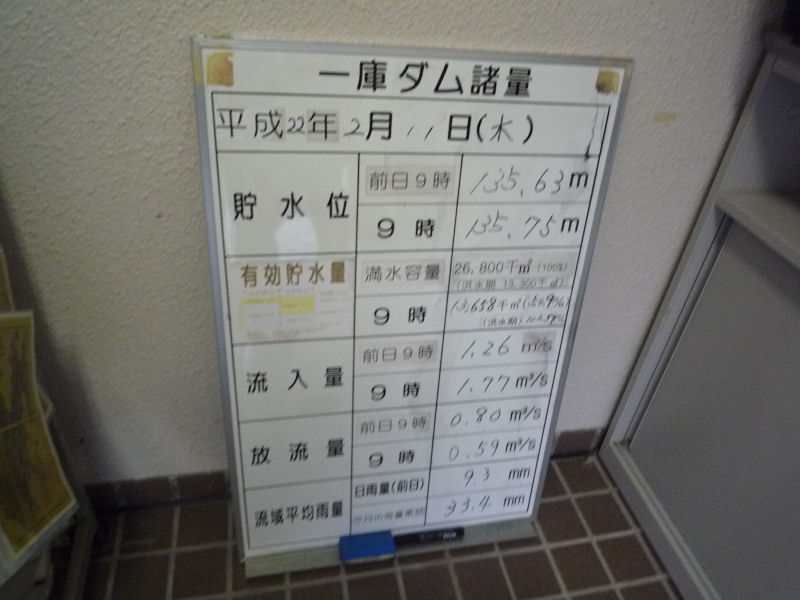 一庫ダム諸量
平成22年2月11日(木)
貯水位 前日9時 135.63m
9時 135.75m
有効貯水量 満水容量 26,800千㎥(100%)
(洪水期 13,300千㎥)
9時 13,658千㎥
(洪水期)
流入量 前日9時 1.26 m³/s
9時 1.77 m³/s
放流量 前日9時 0.80 m³/s
9時 0.59 m³/s
流域平均雨量 日雨量(前日) 9.3 mm
今月の雨量累計 33.4 mm